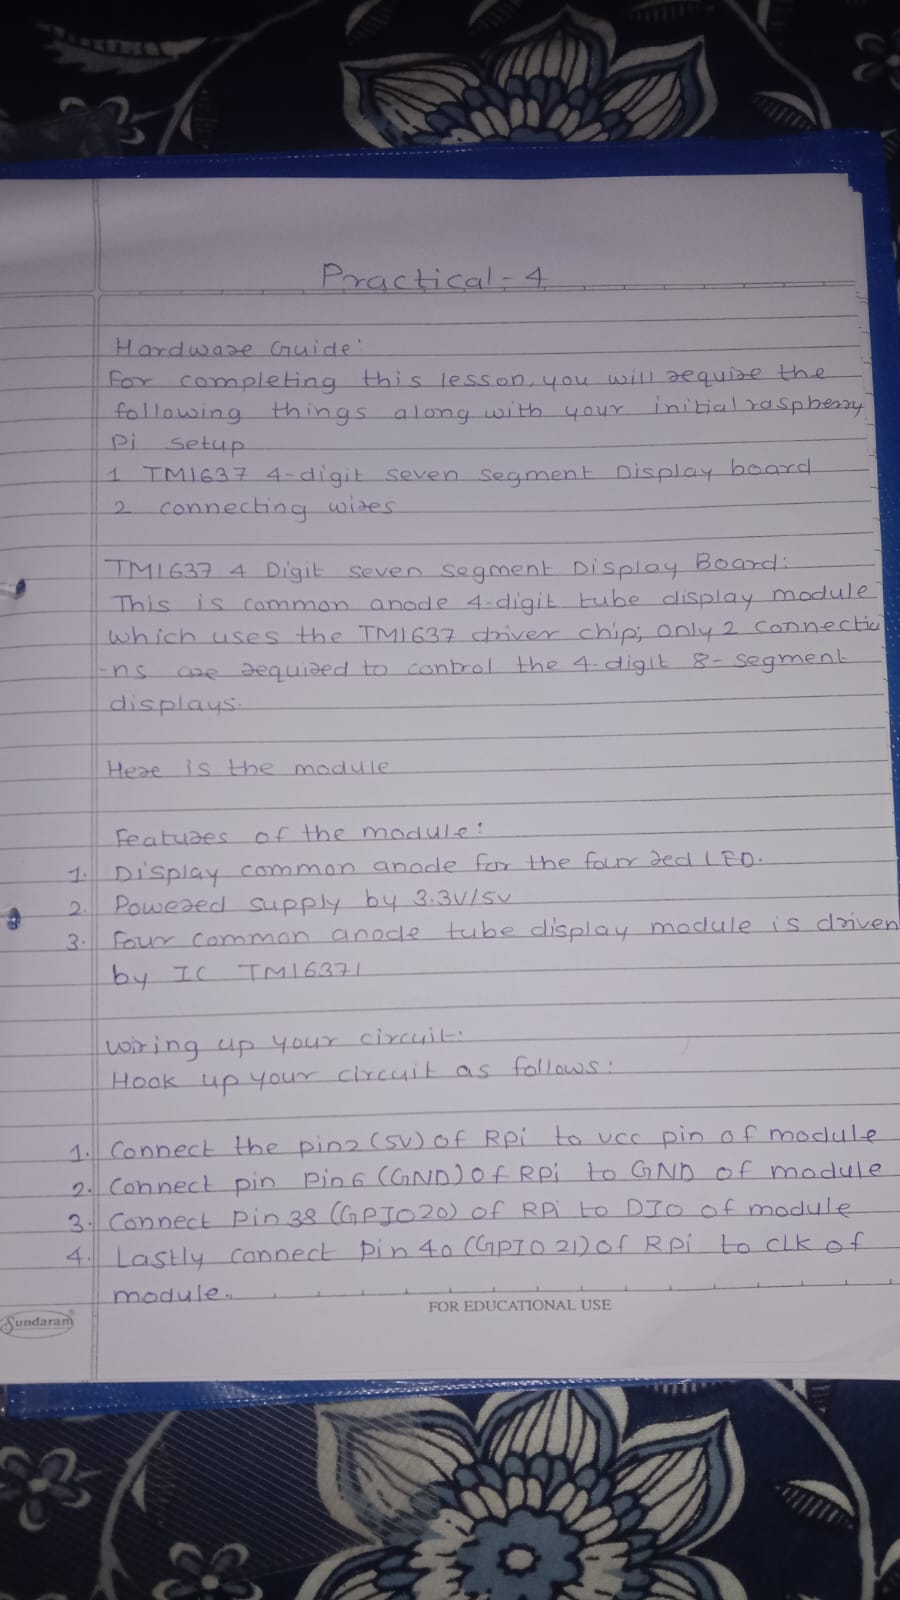 Practical - 4
Hardware Guide:
For completing this lesson, you will require the
following things along with your initial raspberry
Pi setup
1 TM1637 4-digit seven segment Display board
2 connecting wires
TM1637 4 Digit seven segment Display Board:
This is common anode 4-digit tube display module
which uses the TM1637 driver chip; only 2 connectio
-ns are required to control the 4-digit 8-segment
displays.
Here is the module
Features of the module:
1. Display common anode for the four red LED.
2. Powered supply by 3.3V/5V
3. Four common anode tube display module is driven
by IC TM16371
Wiring up your circuit:
Hook up your circuit as follows:
1. Connect the pin2 (5V) of RPi to vcc pin of module
2. Connect pin Pin6 (GND) of RPi to GND of module
3. Connect Pin38 (GPIO20) of RPi to DIO of module
4. Lastly connect pin 40 (GPIO 21) of RPi to CLK of
module.
Sundaram
FOR EDUCATIONAL USE